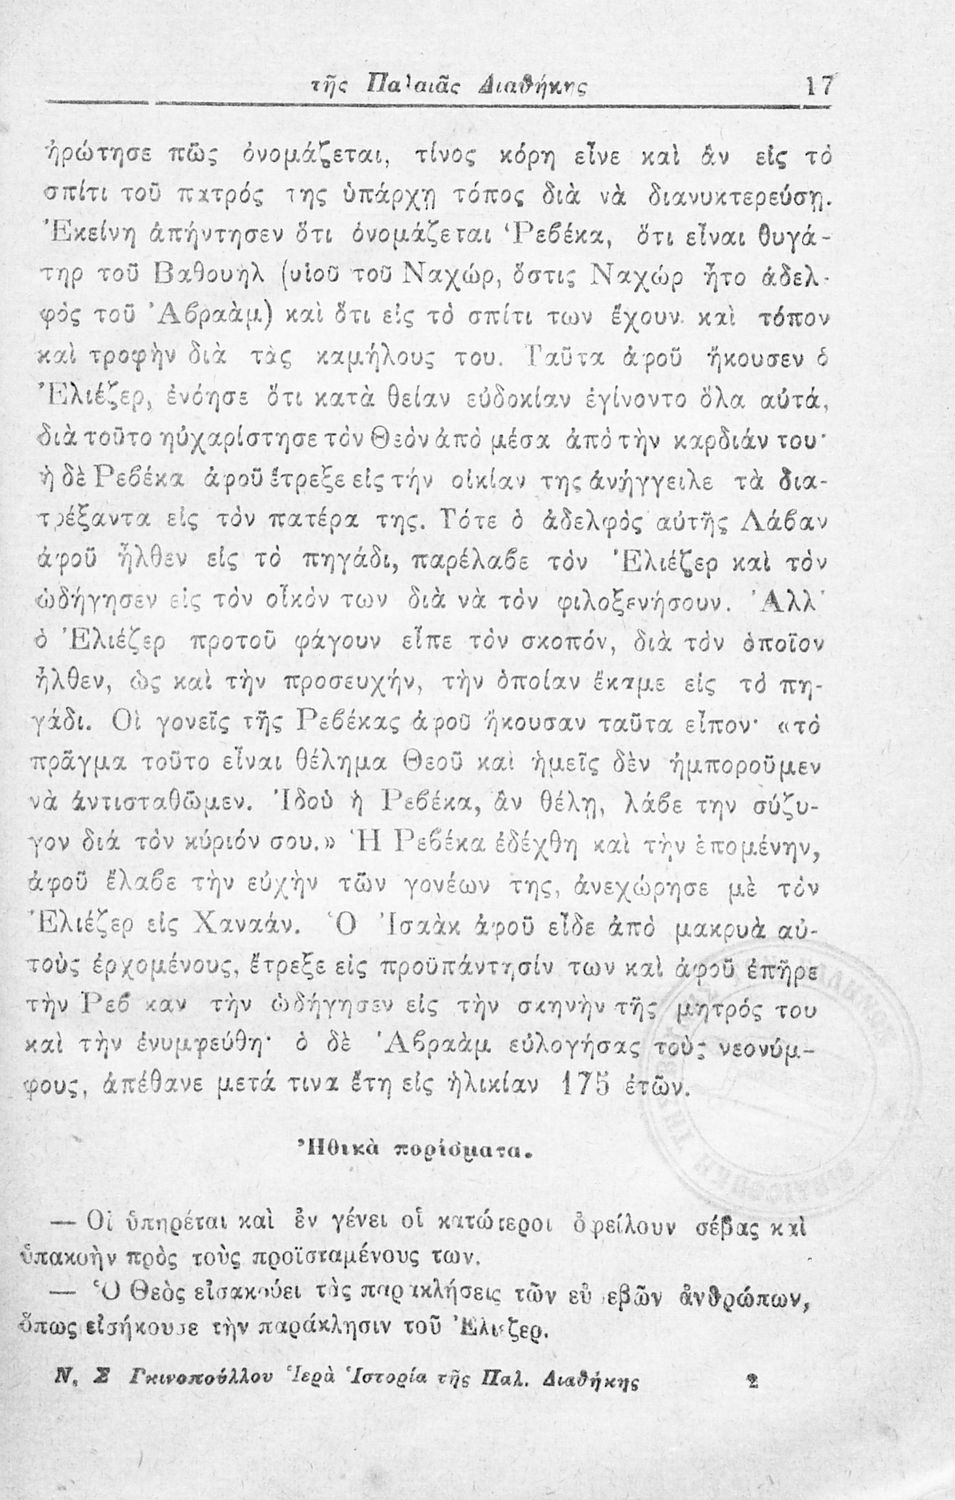 τῆς Παλαιᾶς Διαθήκης 17
ἠρώτησε πῶς ὀνομάζεται, τίνος κόρη εἶνε καὶ ἂν εἰς τὸ
σπίτι τοῦ πατρός της ὑπάρχῃ τόπος διὰ νὰ διανυκτερεύσῃ.
Ἐκείνη ἀπήντησεν ὅτι ὀνομάζεται Ῥεβέκα, ὅτι εἶναι θυγά-
τηρ τοῦ Βαθουὴλ (υἱοῦ τοῦ Ναχώρ, ὅστις Ναχώρ ἦτο ἀδελ-
φὸς τοῦ Ἀβραὰμ) καὶ ὅτι εἰς τὸ σπίτι των ἔχουν καὶ τόπον
καὶ τροφὴν διὰ τὰς καμήλους του. Ταῦτα ἀφοῦ ἤκουσεν ὁ
Ἐλιέζερ, ἐνόησε ὅτι κατὰ θείαν εὐδοκίαν ἐγίνοντο ὅλα αὐτά,
διὰ τοῦτο ηὐχαρίστησε τὸν Θεὸν ἀπὸ μέσα ἀπὸ τὴν καρδιάν του·
ἡ δὲ Ρεβέκα ἀφοῦ ἔτρεξε εἰς τὴν οἰκίαν της ἀνήγγειλε τὰ δια-
τρέξαντα εἰς τὸν πατέρα της. Τότε ὁ ἀδελφὸς αὐτῆς Λάβαν
ἀφοῦ ἦλθεν εἰς τὸ πηγάδι, παρέλαβε τὸν Ἐλιέζερ καὶ τὸν
ὡδήγησεν εἰς τὸν οἶκόν των διὰ νὰ τὸν φιλοξενήσουν. Ἀλλ'
ὁ Ἐλιέζερ προτοῦ φάγουν εἶπε τὸν σκοπόν, διὰ τὸν ὁποῖον
ἦλθεν, ὡς καὶ τὴν προσευχήν, τὴν ὁποίαν ἔκαμε εἰς τὸ πη-
γάδι. Οἱ γονεῖς τῆς Ρεβέκας ἀφοῦ ἤκουσαν ταῦτα εἶπον· «τὸ
πρᾶγμα τοῦτο εἶναι θέλημα Θεοῦ καὶ ἡμεῖς δὲν ἠμποροῦμεν
νὰ ἀντισταθῶμεν. Ἰδοὺ ἡ Ρεβέκα, ἂν θέλῃ, λάβε την σύζυ-
γον διὰ τὸν κύριόν σου.» Ἡ Ρεβέκα ἐδέχθη καὶ τὴν ἑπομένην,
ἀφοῦ ἔλαβε τὴν εὐχὴν τῶν γονέων της, ἀνεχώρησε μὲ τὸν
Ἐλιέζερ εἰς Χαναάν. Ὁ Ἰσαὰκ ἀφοῦ εἶδε ἀπὸ μακρυὰ αὐ-
τοὺς ἐρχομένους, ἔτρεξε εἰς προϋπάντησίν των καὶ ἀφοῦ ἐπῆρε
τὴν Ρεβ καν τὴν ὡδήγησεν εἰς τὴν σκηνὴν τῆς μητρός του
καὶ τὴν ἐνυμφεύθη· ὁ δὲ Ἀβραὰμ εὐλογήσας τοὺς νεονύμ-
φους, ἀπέθανε μετά τινα ἔτη εἰς ἡλικίαν 175 ἐτῶν.
Ἠθικὰ πορίσματα.
— Οἱ ὑπηρέται καὶ ἐν γένει οἱ κατώτεροι ὀφείλουν σέβας καὶ
ὑπακοὴν πρὸς τοὺς προϊσταμένους των.
— Ὁ Θεὸς εἰσακούει τὰς παρακλήσεις τῶν εὐσεβῶν ἀνθρώπων,
ὅπως εἰσήκουσε τὴν παράκλησιν τοῦ Ἐλιέζερ.
Ν. Σ Γκινοπούλλου Ἱερὰ Ἱστορία τῆς Παλ. Διαθήκης 2